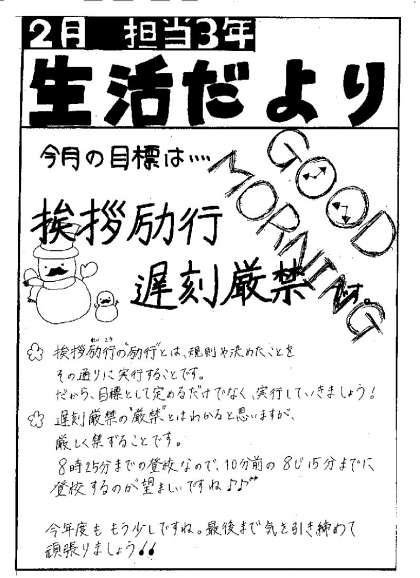 2月 担当3年
生活だより
今月の目標は‥‥
GOOD
MORNING
挨拶励行
遅刻厳禁です。
挨拶励行の"励行"とは、規則や決めたことを
その通りに実行することです。
だから、目標として定めるだけでなく、実行していきましょう!
遅刻厳禁の"厳禁"とはわかると思いますが、
厳しく禁ずることです。
8時25分までの登校なので、10分前の8じ15分までに
登校するのが望ましいですね♪♪
今年度ももう少しですね。最後まで気を引き締めて
頑張りましょう!!